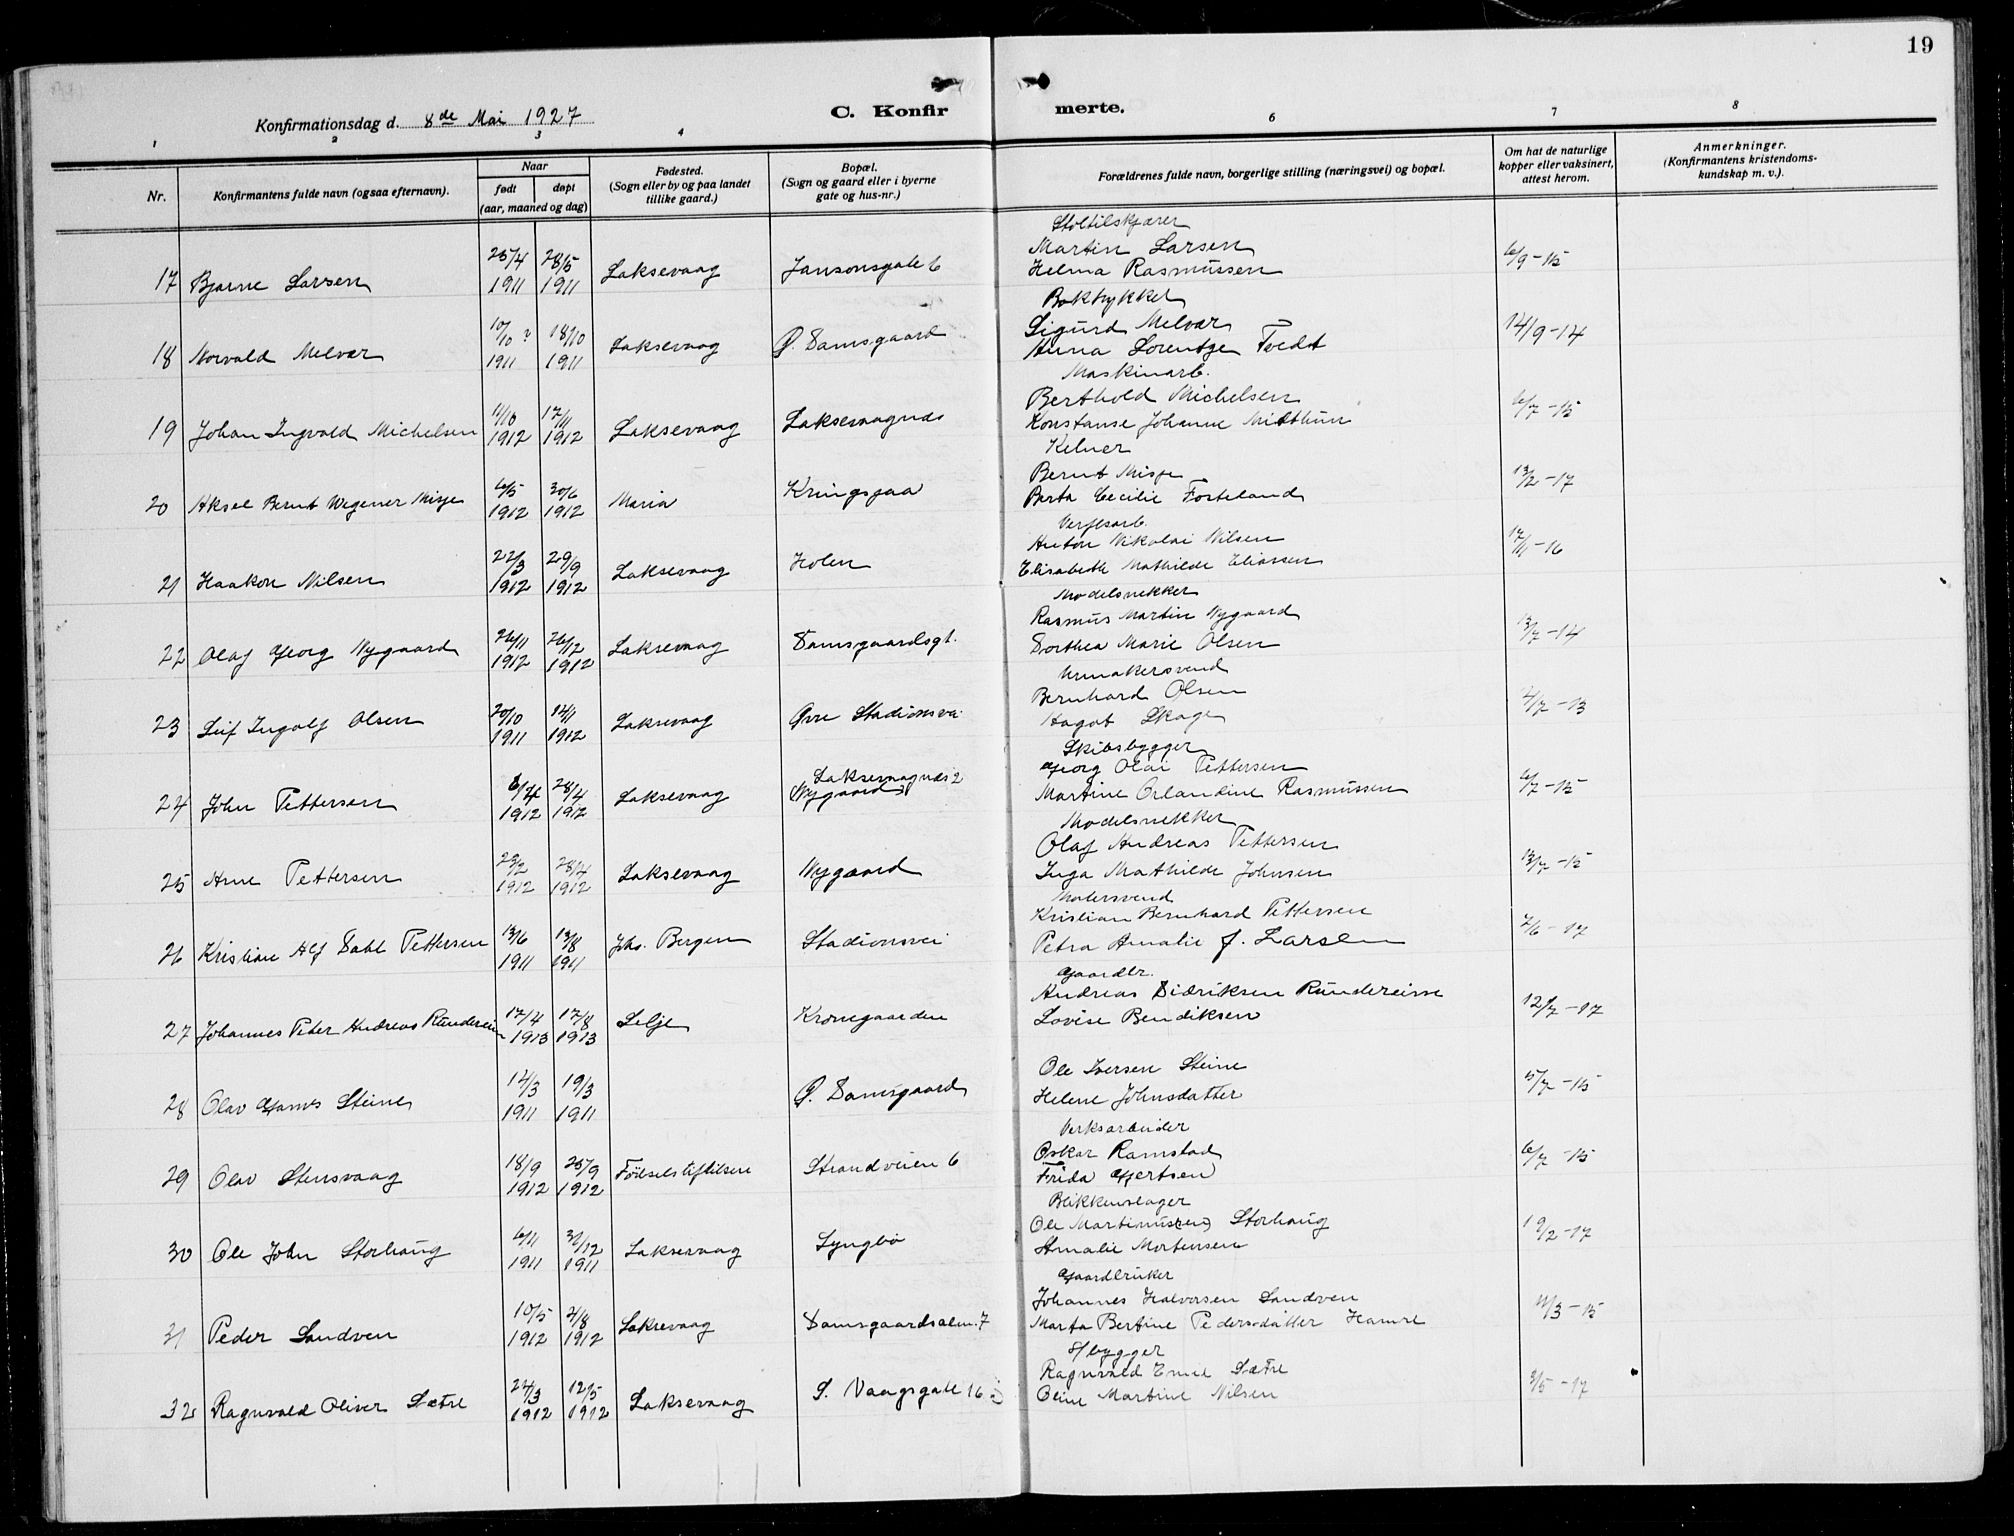 19
Konfirmationsdag d. 8de Mai 1927
C. Konfirmerte.
1 2 3 4 6 7 8
Nr.
Konfirmantens fulde navn (ogsaa efternavn).
Naar
født
døpt
(aar, maaned og dag)
Fødested.
(Sogn eller by og paa landet
tillike gaard.)
Bopæl.
(Sogn og gaard eller i byerne
gate og hus-nr.)
Forældrenes fulde navn, borgerlige stilling (næringsvei) og bopæl.
Om hat de naturlige
kopper eller vaksinert,
attest herom.
Anmerkninger.
(Konfirmantens kristendoms-
kundskap m. v.).
Støltilskjærer
Martin Larsen
17 Bjarne Larsen 25/4 1911 28/5 1911 Laksevaag Jansonsgate 6 Helma Rasmussen 6/9-15
Boktrykker
Sigurd Melvær
18 Norvald Melvær 10/10 ? 1911 18/10 1911 Laksevaag Ø. Damsgaard Anna Lorentze Tvedt 14/9-14
Maskinarb.
Berthold Michelsen
19 Johan Ingvald Michelsen 11/10 1912 17/11 1912 Laksevaag Laksevaagnes Konstanse Johanne Midthun 6/7-15
Kelner
Bernt Misje
20 Aksel Bernt Wegener Misje 6/5 1912 30/6 1912 Maria Kringsjaa Berta Cecilie Fosteland 13/2-17
Verftsarb.
Anton Nikolai Nilsen
21 Haakon Nilsen 22/3 1912 29/9 1912 Laksevaag Holen Elisabeth Mathilde Eliassen 17/11-16
Modelsnekker
Rasmus Martin Nygaard
22 Olaf Georg Nygaard 26/11 1912 26/12 1912 Laksevaag Damsgaardsgt. Dorthea Marie Olsen 13/7-14
Urmakersvend
Bernhard Olsen
23 Leif Ingolf Olsen 20/10 1911 14/1 1912 Laksevaag Øvre Stadionsvei Hagot Skage 4/7-13
Skibsbygger
Georg Olai Pettersen
24 John Pettersen 8/4 1912 28/4 1912 Laksevaag Laksevaagnes 2 Nygaard Martine Orlandine Rasmussen 6/7-15
Modelsnekker
Olaf Andreas Pettersen
25 Arne Pettersen 29/2 1912 28/4 1912 Laksevaag Nygaard Inga Mathilde Johnsen 13/7-15
Malersvend
Kristian Bernhard Pettersen
26 Kristian Alf Dahl Pettersen 13/6 1911 13/8 1911 Jhs. Bergen Stadionsvei Petra Amalie f. Larsen 7/6-17
Gaardbr.
Andreas Didriksen Rundereim
27 Johannes Peter Andreas Rundereim 17/4 1913 17/8 1913 Selje Kronegaarden Lovise Bendiksen 12/7-17
Ole Iversen Steine
28 Olav Hannes Steine 14/3 1911 19/3 1911 Ø. Damsgaard Helene Johnsdatter 5/7-15
Verksarbeider
Oskar Ramstad
29 Olav Stensvaag 18/9 1912 25/9 1912 Fødselsstiftelsen Strandveien 6 Frida Gjertsen 6/7-15
Blikkenslager
Ole Martinussen Storhaug
30 Ole John Storhaug 6/11 1911 31/12 1911 Laksevaag Lyngbø Amalie Mortensen 19/2-17
Gaardbruker
Johannes Halvorsen Sandven
31 Peder Sandven 10/5 1912 4/8 1912 Laksevaag Damsgaardsalm. 7 Marta Bertine Pedersdatter Hamre 11/3-15
S/bygger
Ragnvald Emil Sætre
32 Ragnvald Oliver Sætre 24/3 1912 12/5 1912 Laksevaag S. Vaagsgate 16 Oline Martine Nilsen 3/5-17